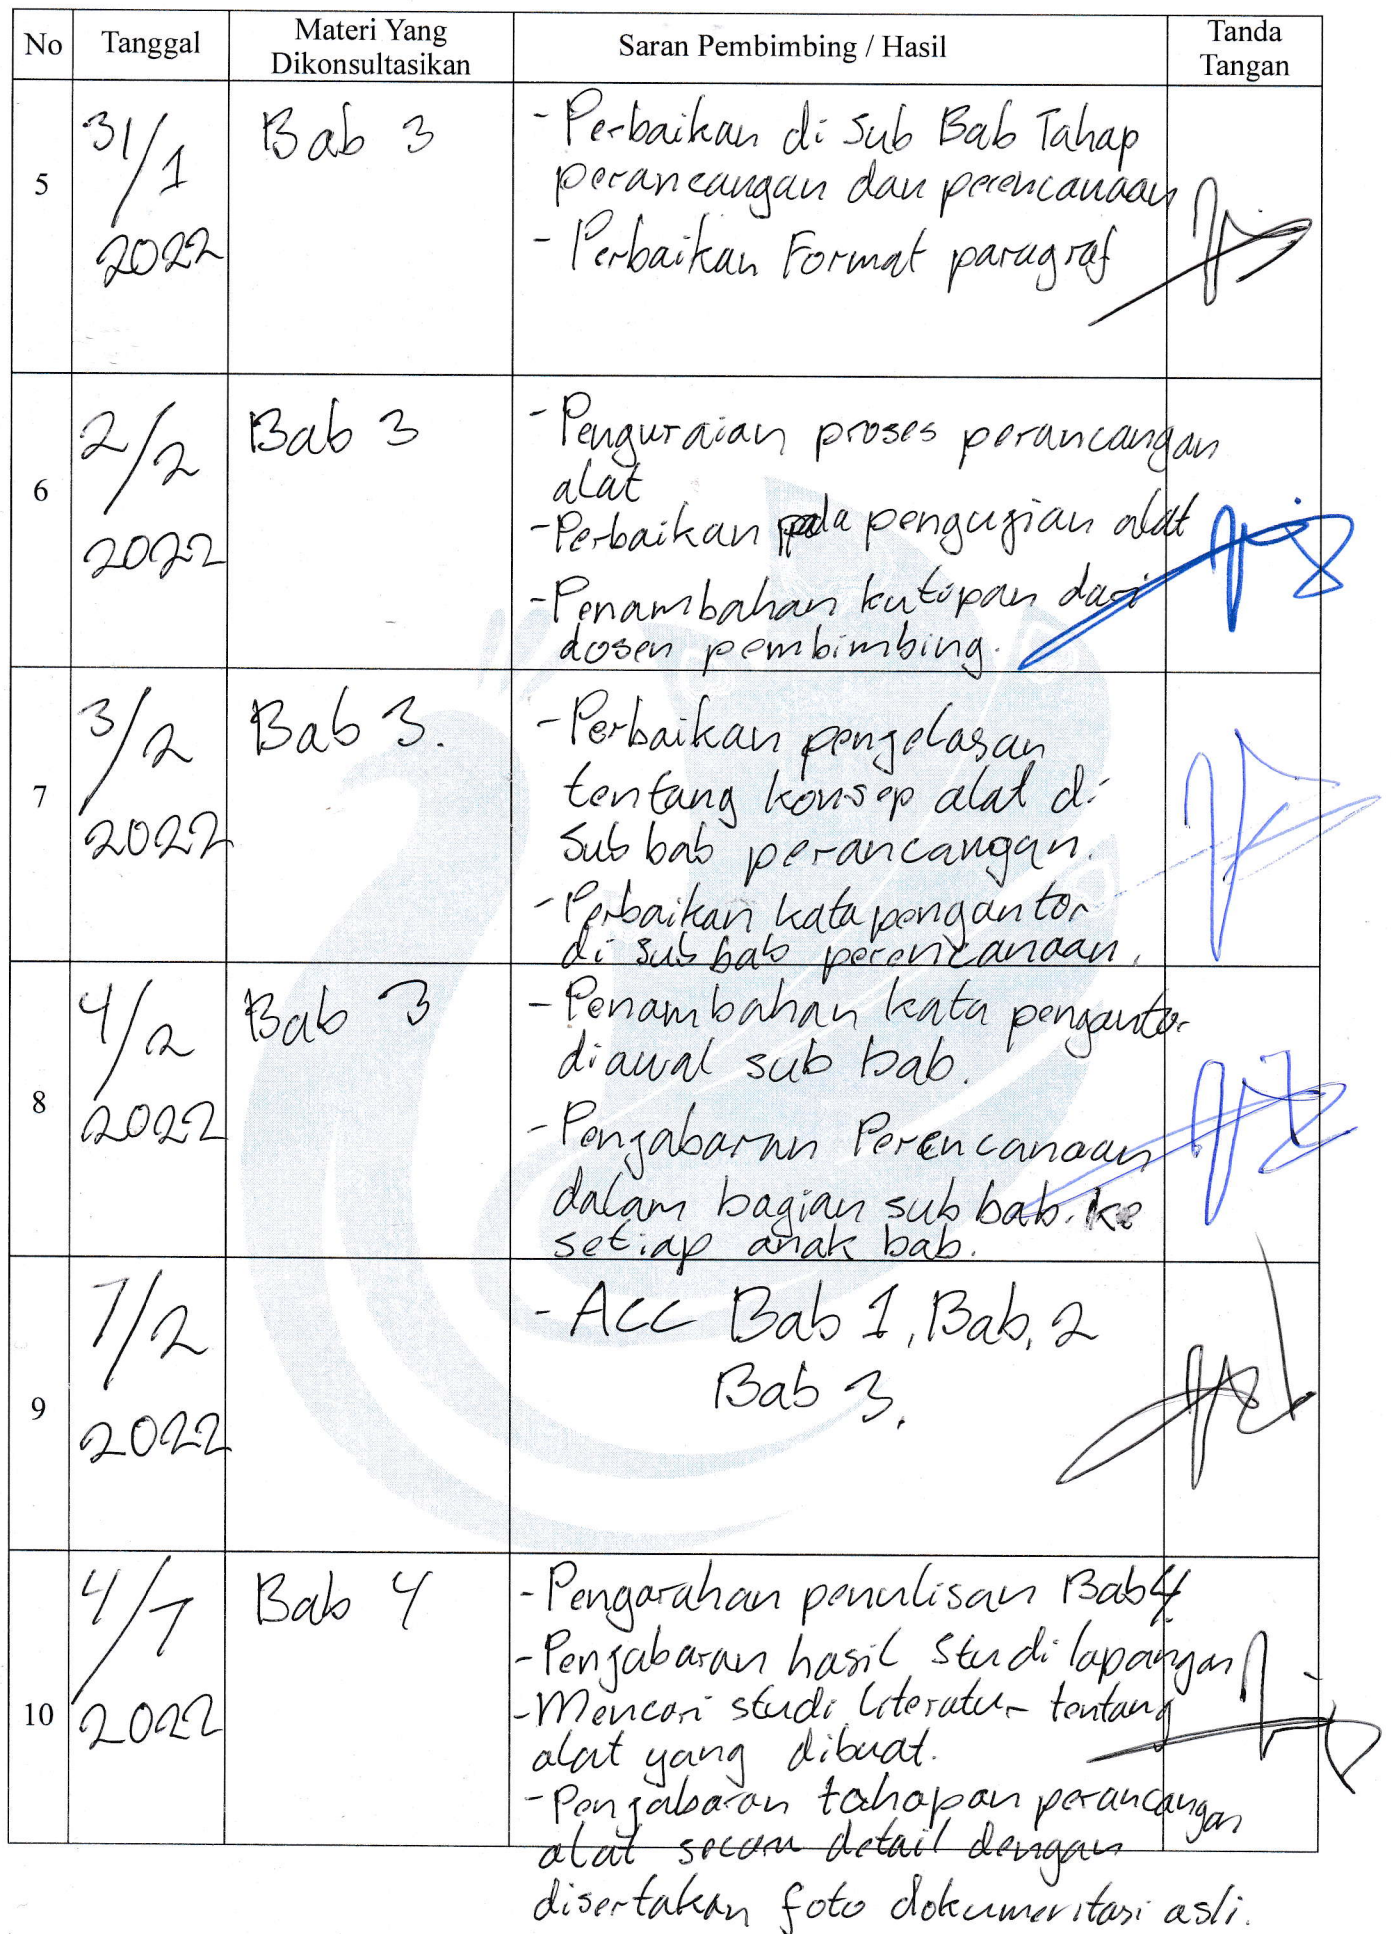 No Tanggal Materi Yang Dikonsultasikan Saran Pembimbing / Hasil Tanda Tangan
5
31/1
2022
Bab 3
- Perbaikan di Sub Bab Tahap
perancangan dan perencanaan
- Perbaikan Format paragraf
6
2/2
2022
Bab 3
- Penguraian proses perancangan
alat
- Perbaikan pada pengujian alat
- Penambahan kutipan dari
dosen pembimbing.
7
3/2
2022
Bab 3.
- Perbaikan penjelasan
tentang konsep alat di
Sub bab perancangan.
- Perbaikan kata pengantar
di sub bab perencanaan.
8
4/2
2022
Bab 3
- Penambahan kata pengantar
diawal sub bab.
- Penjabaran Perencanaan
dalam bagian sub bab. ke
setiap anak bab.
9
7/2
2022
- ACC Bab 1, Bab, 2
Bab 3.
10
4/7
2022
Bab 4
- Pengarahan penulisan Bab 4
- Penjabaran hasil studi lapangan
- Mencari studi literatur tentang
alat yang dibuat.
- Penjabaran tahapan perancangan
alat secara detail dengan
disertakan foto dokumentasi asli.